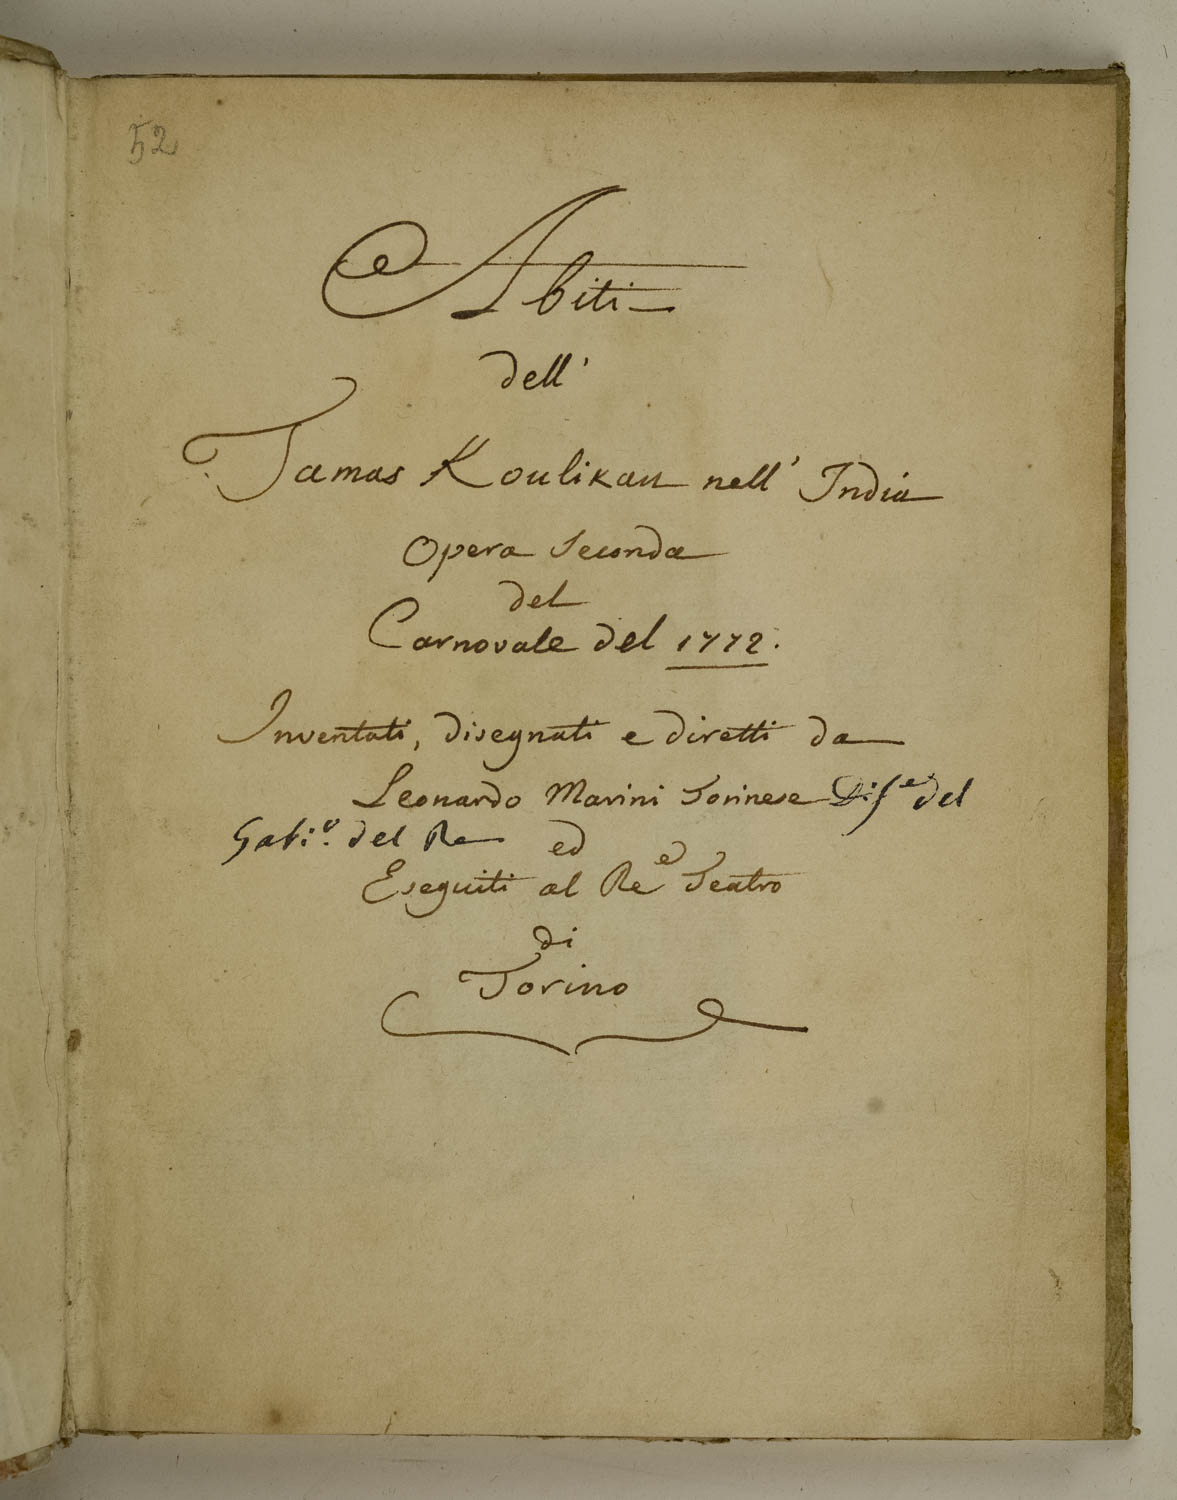 52
Abiti
dell'
Tamas Koulikan nell' India
Opera Seconda
del
Carnovale del 1772.
Inventati, disegnati e diretti da
Leonardo Marini Torinese Dis.e del
Gabi.o del Re ed
Eseguiti al Re.e Teatro
di
Torino